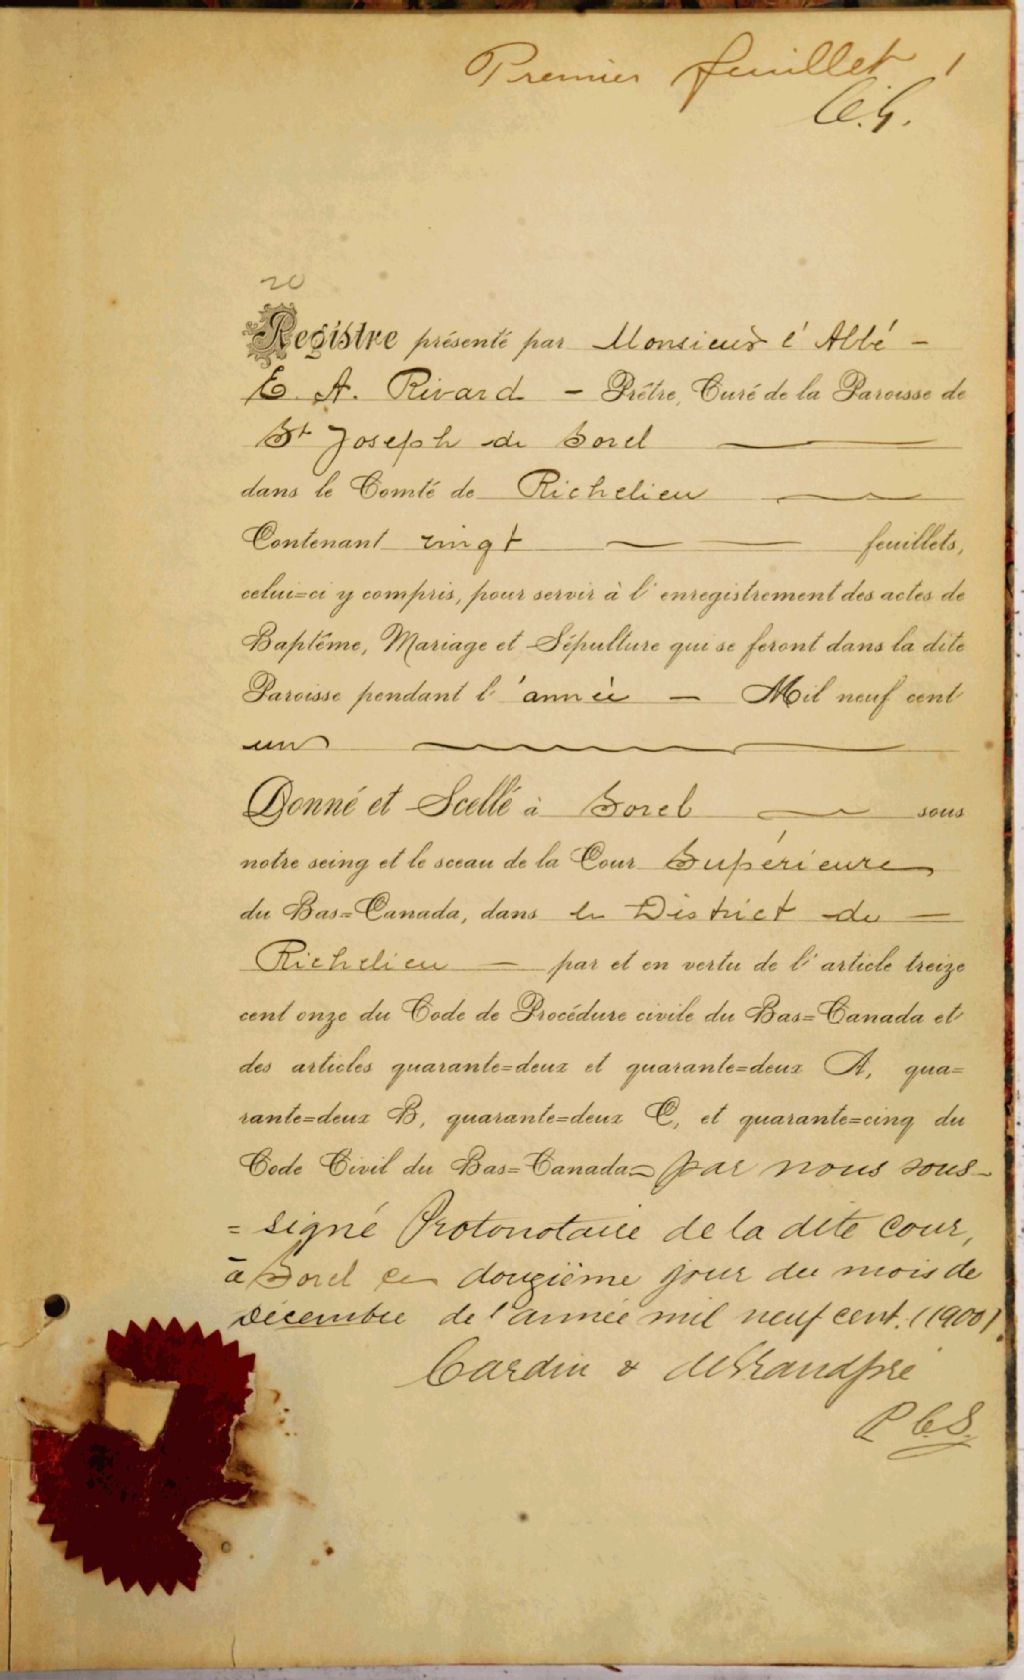 Premier feuillet 1
C.G.
20
Registre présenté par Monsieur l'Abbé -
E. A. Rivard - Prêtre, Curé de la Paroisse de
St Joseph de Sorel
dans le Comté de Richelieu
Contenant vingt feuillets,
celui=ci y compris, pour servir à l'enregistrement des actes de
Baptême, Mariage et Sépulture qui se feront dans la dite
Paroisse pendant l'année - Mil neuf cent
un
Donné et Scellé à Sorel sous
notre seing et le sceau de la Cour Supérieure
du Bas=Canada, dans le District de -
Richelieu - par et en vertu de l'article treize
cent onze du Code de Procédure civile du Bas=Canada et
des articles quarante=deux et quarante=deux A, qua=
rante=deux B, quarante=deux C, et quarante=cinq du
Code Civil du Bas=Canada= par nous sous-
= signé Protonotaire de la dite Cour,
à Sorel ce douzième jour du mois de
Décembre de l'année mil neuf cent. (1900).
Cardin & deGrandpré
P.C.S.